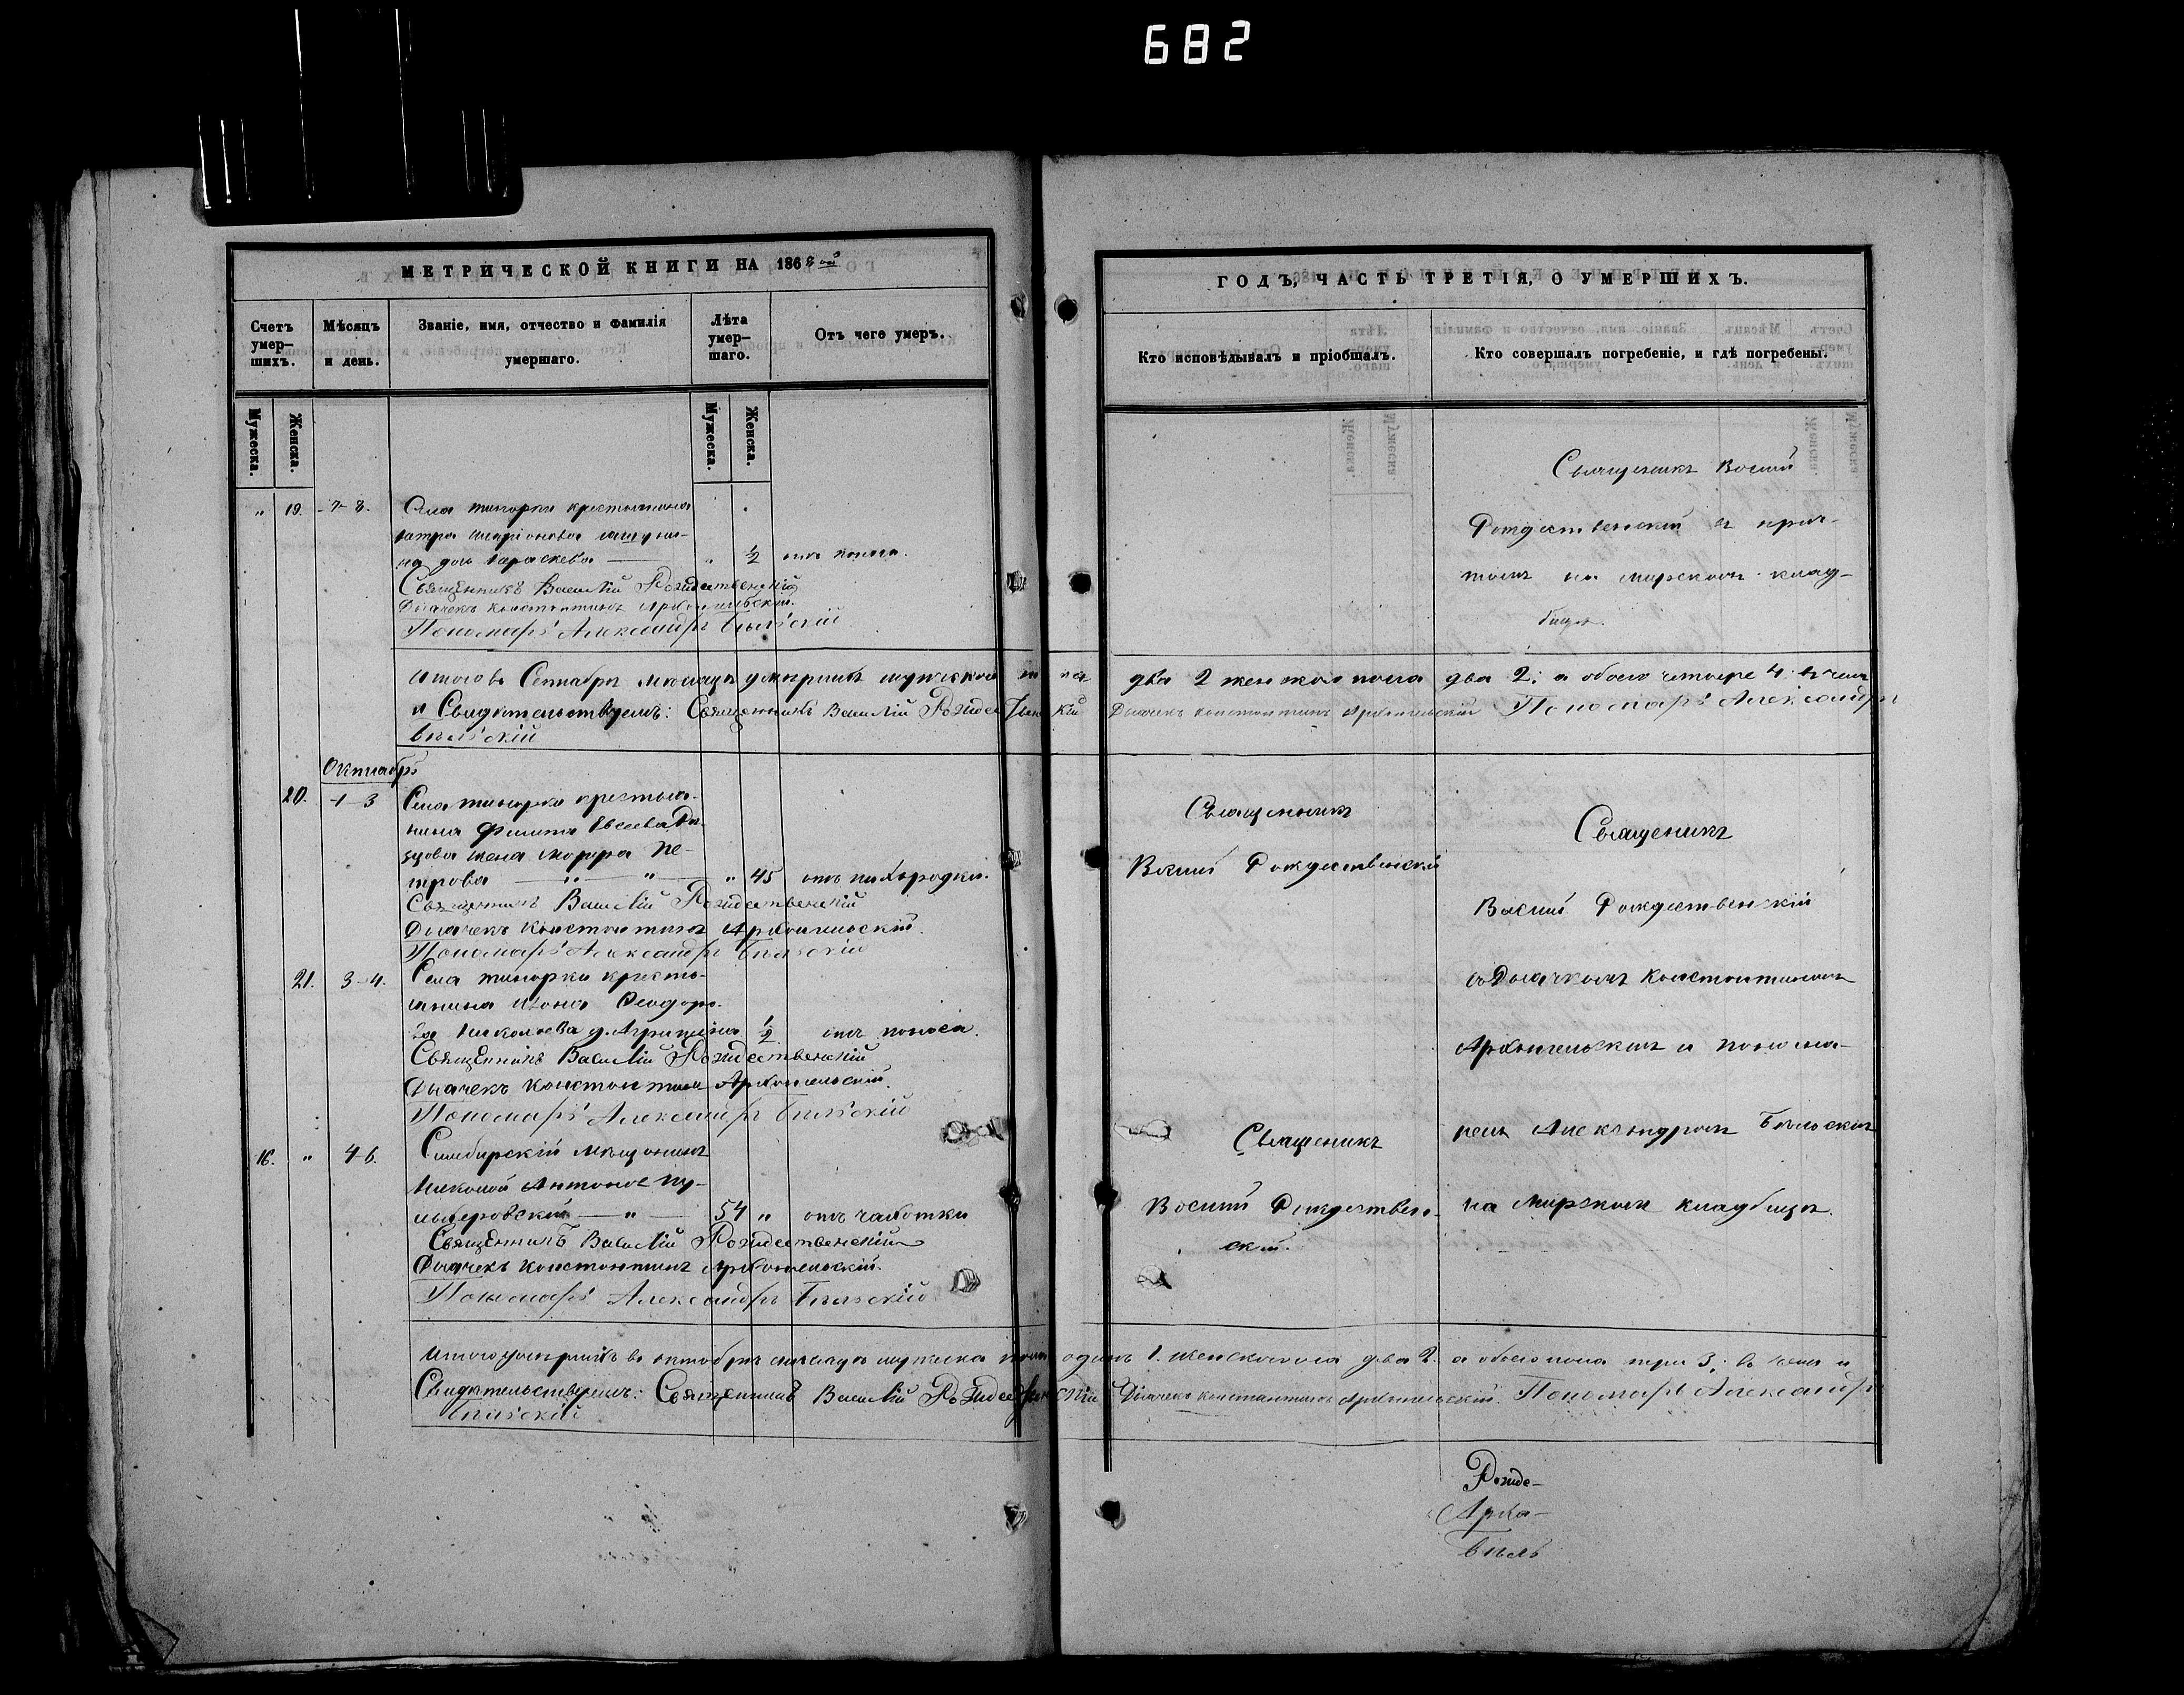 682
МЕТРИЧЕСКОЙ КНИГИ НА 186
Счетъ умер-шихъ.
Мѣсяцъ и день.
Званіе, имя, отчество и фамилія умершаго.
Лѣта умер-шаго.
Отъ чего умеръ.
Мужеска.
Женска.
Мужеска.
Женска.
„ 19. 7-8. Села крестьянина
на дочь Параскева — „ ½ отъ поноса.
Священникъ Василій Рождественскій
Дьячекъ Константинъ Архангельскій.
Пономарь Александръ Бѣльскій
Итого въ Сентябрѣ мѣсяцѣ умершихъ мужескаго по ла
и Свидѣтельствуемъ: Священникъ Василій Рождественскій
Бѣльскій
Октябрь
20. 1-3 Села крестья-
нина Филипа Евсеева
жена Марѳа Пе-
трова — „ — „ — „ 45 отъ лихорадки.
Священникъ Василій Рождественскій
Дьячекъ Константинъ Архангельскій.
Пономарь Александръ Бѣльскій
21. 3-4. Села кресть-
янина Ивана Ѳеодоро-
ва Николаева д. Агрипина ½ отъ поноса.
Священникъ Василій Рождественскій
Дьячекъ Константинъ Архангельскій.
Пономарь Александръ Бѣльскій
16. „ 4-6. Симбирскій мѣщанинъ
Николай Антонов
— „ — 54 „ отъ чахотки
Священникъ Василій Рождественскій
Дьячекъ Константинъ Архангельскій.
Пономарь Александръ Бѣльскій
Итого умершихъ въ октябрѣ мѣсяцѣ мужеска пола
Свидѣтельствуемъ: Священникъ Василій Рождественскій
Бѣльскій
ГОДЪ, ЧАСТЬ ТРЕТІЯ, О УМЕРШИХЪ.
Кто исповѣдывалъ и пріобщалъ.
Кто совершалъ погребеніе, и гдѣ погребены.
Священикъ Васий
Рождественский съ прич-
томъ на мирскомъ клад-
бищѣ.
два 2 женскаго пола два 2: а обоего четыре 4: въ чемъ
Дьячекъ Константинъ Архангельскій Пономарь Александръ
Священикъ
Васий Рождественский
Священикъ
Васий Рождественскій
съ Дьячкомъ Константиномъ
Архангельскимъ и понома-
ремъ Александромъ Бѣльскимъ
на мирскомъ кладбищѣ.
Священикъ
Васий Рождествен-
ский.
одинъ 1. женска пола два 2. а обоего пола три 3; въ чемъ и
Дьячекъ Константинъ Архангельскій. Пономарь Александръ
Рожде-
Арха-
Бѣль